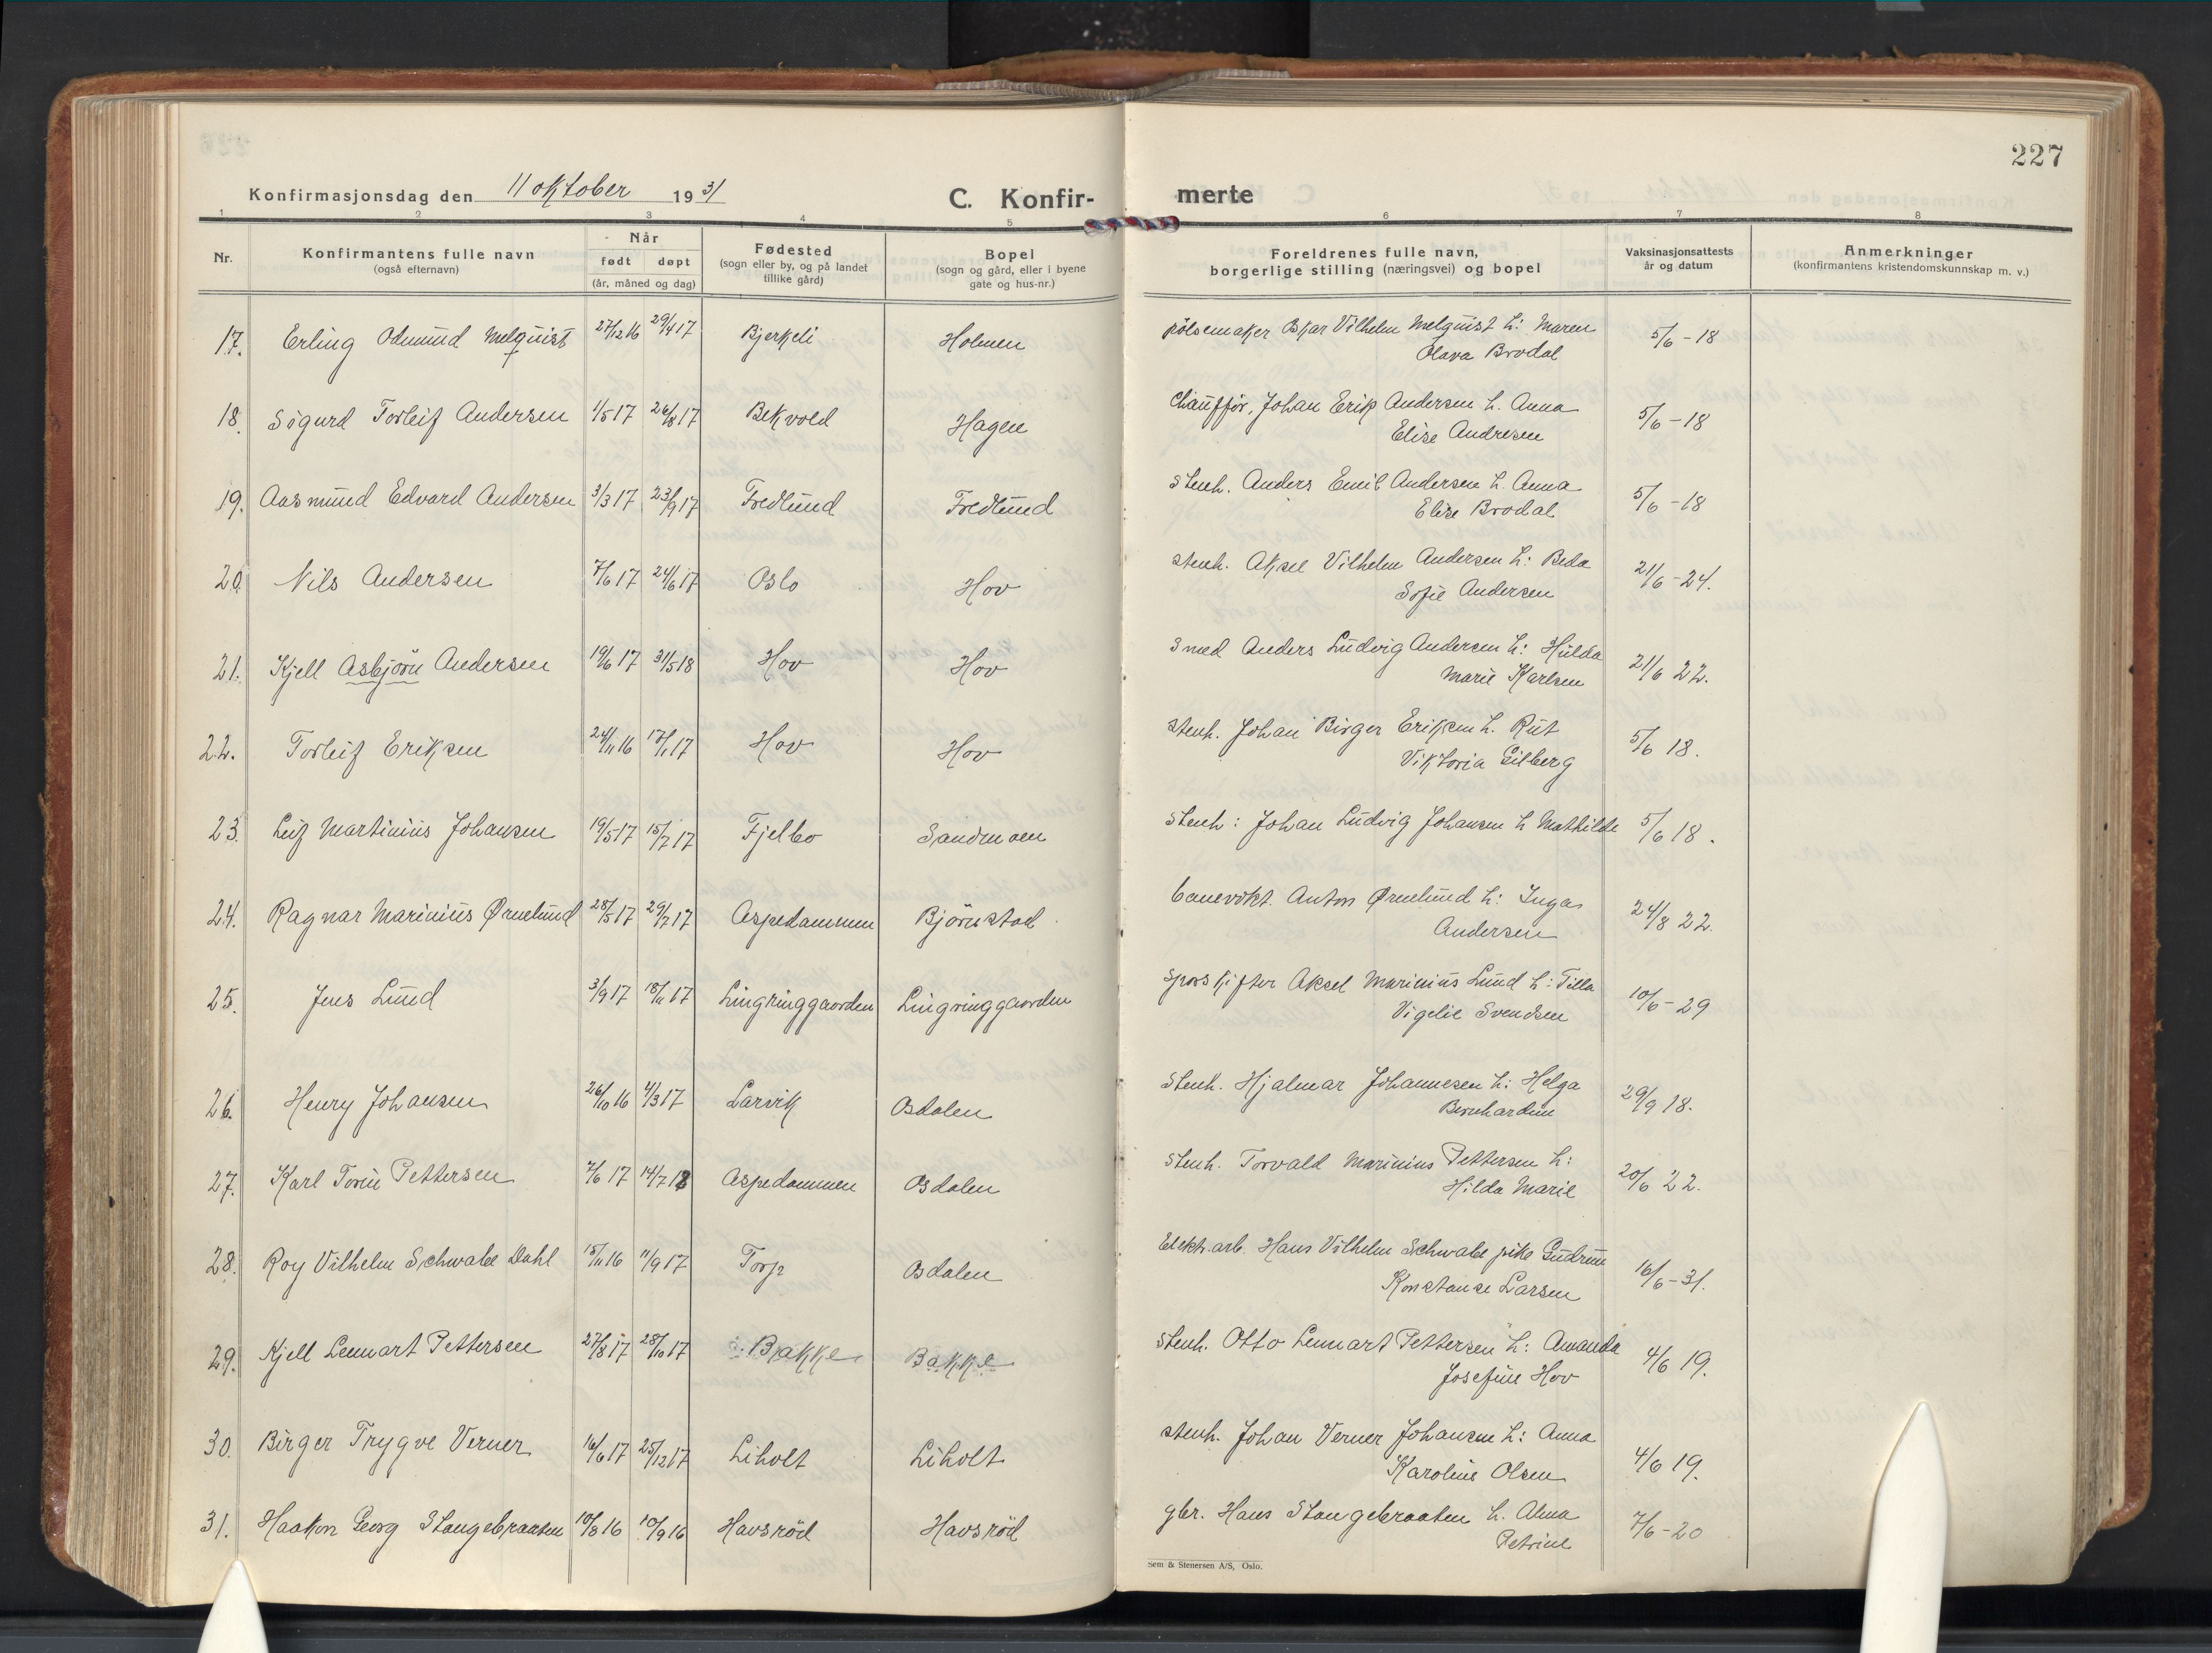 227
Konfirmasjonsdag den 11 oktober 1931
C. Konfir-
merte
1 2 3 4 5 6 7 8
Nr.
Konfirmantens fulle navn
(også efternavn)
Når
født døpt
(år, måned og dag)
Fødested
(sogn eller by, og på landet
tillike gård)
Bopel
(sogn og gård, eller i byene
gate og hus-nr.)
Foreldrenes fulle navn,
borgerlige stilling (næringsvei) og bopel
Vaksinasjonsattests
år og datum
Anmerkninger
(konfirmantens kristendomskunnskap m. v.)
17. Erling Odmund Melquist 27/12 16 29/4 17 Bjerkeli Holmen pölsemaker Oskar Vilhelm Melquist h: Maren 5/6-18
Olava Brodal
18. Sigurd Torleif Andersen 1/5 17 26/8 17 Bekvold Hagen Chaufför, Johan Erik Andersen h. Anna 5/6-18
Elise Andresen
19. Aasmund Edvard Andersen 3/3 17 23/9 17 Fredlund Fredlund Stenh. Anders Emil Andersen h. Anna 5/6-18
Elise Brodal
20. Nils Andersen 7/6 17 24/6 17 Oslo Hov stenh. Aksel Vilhelm Andersen h: Beda 21/6-24.
Sofie Andersen
21. Kjell Asbjörn Andersen 19/6 17 31/5 18 Hov Hov Smed Anders Ludvig Andersen h: Hulda 21/6 22.
Marie Karlsen
22. Torleif Eriksen 24/11 16 17/1 17 Hov Hov Stenh. Johan Birger Eriksen h. Rut 5/6 18.
Viktoria Gilberg
23. Leif Martinius Johansen 19/5 17 15/7 17 Fjelbo Sandmoen Stenh: Johan Ludvig Johansen h Mathilde 5/6 18.
24. Ragnar Marinius Ørnelund 28/5 17 29/7 17 Aspedammen Björnstad Banevokt. Anton Ørnelund h: Inga 24/8 22.
Andersen
25. Jens Lund 3/9 17 18/11 17 Lingringgaarden Lingringgaarden Sporskifter Aksel Marinius Lund h: Tilla 10/6-29
Vigelie Svendsen
26. Henry Johansen 26/10 16 4/3 17 Larvik Osdalen Stenh. Hjalmar Johannesen h: Helga 29/9 18.
Bernhardine
27. Karl Torin Pettersen 7/6 17 14/7 18 Aspedammen Osdalen Stenh. Torvald Marinius Pettersen h: 20/6 22.
Hilda Marie
28. Roy Vilhelm Schwabe Dahl 15/11 16 11/9 17 Torp Osdalen Elekt. arb. Hans Vilhelm Schwabe pike Gudrun 16/6-31.
Konstanse Larsen
29. Kjell Lennart Pettersen 27/8 17 28/10 17 Bakke Bakke Stenh. Otto Lennart Pettersen h: Amanda 4/6 19.
Josefine Hov
30. Birger Trygve Verner 16/6 17 25/12 17 Liholt Liholt stenh. Johan Verner Johansen h: Anna 4/6 19.
Karoline Olsen
31. Haakon Georg Stangebraaten 10/8 16 10/9 16 Havsröd Havsröd gbr. Hans Stangebraaten h. Alma 7/6-20
Petrine
Sem & Stenersen A/S, Oslo.